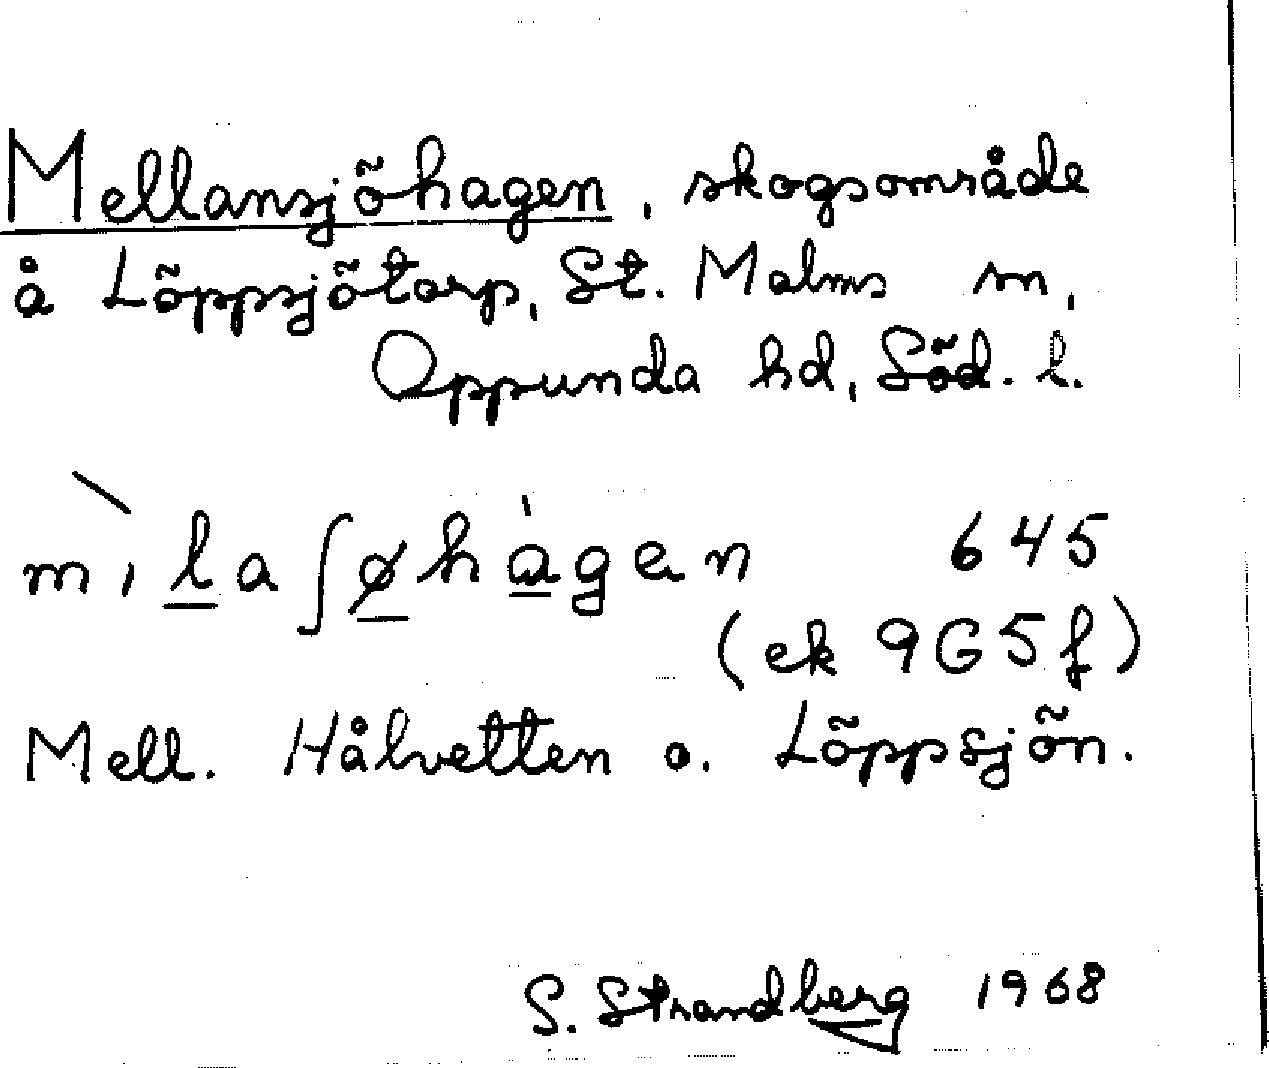 Mellansjöhagen, skogsområde
å Löppsjötorp, St. Malms sn,
Oppunda hd, Söd. l.
mìla∫øhágen 645
(ek 9G5f)
Mell. Hålvetten o. Löppsjön.
S. Strandberg 1968